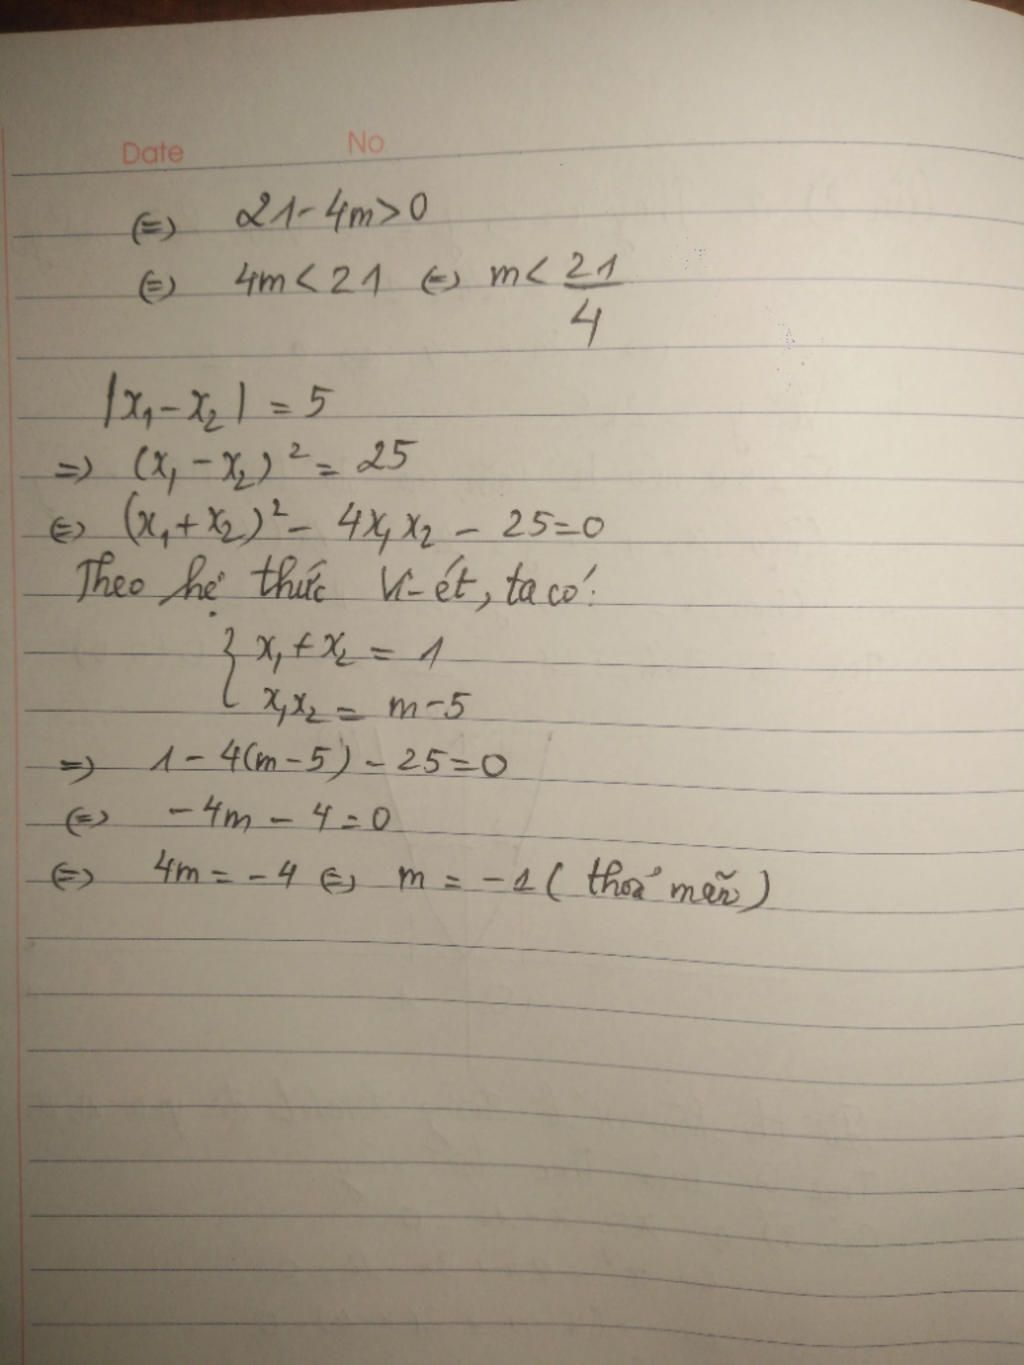 Date No
⇔ 21-4m>0
⇔ 4m<21 ⇔ m<21/4
|x₁-x₂| = 5
⇒ (x₁-x₂)² = 25
⇔ (x₁+x₂)² - 4x₁x₂ - 25=0
Theo hệ thức Vi-ét, ta có:
{ x₁+x₂ = 1
x₁x₂ = m-5
⇒ 1-4(m-5)-25=0
⇔ -4m-4=0
⇔ 4m=-4 ⇔ m=-1 (thoả mãn)